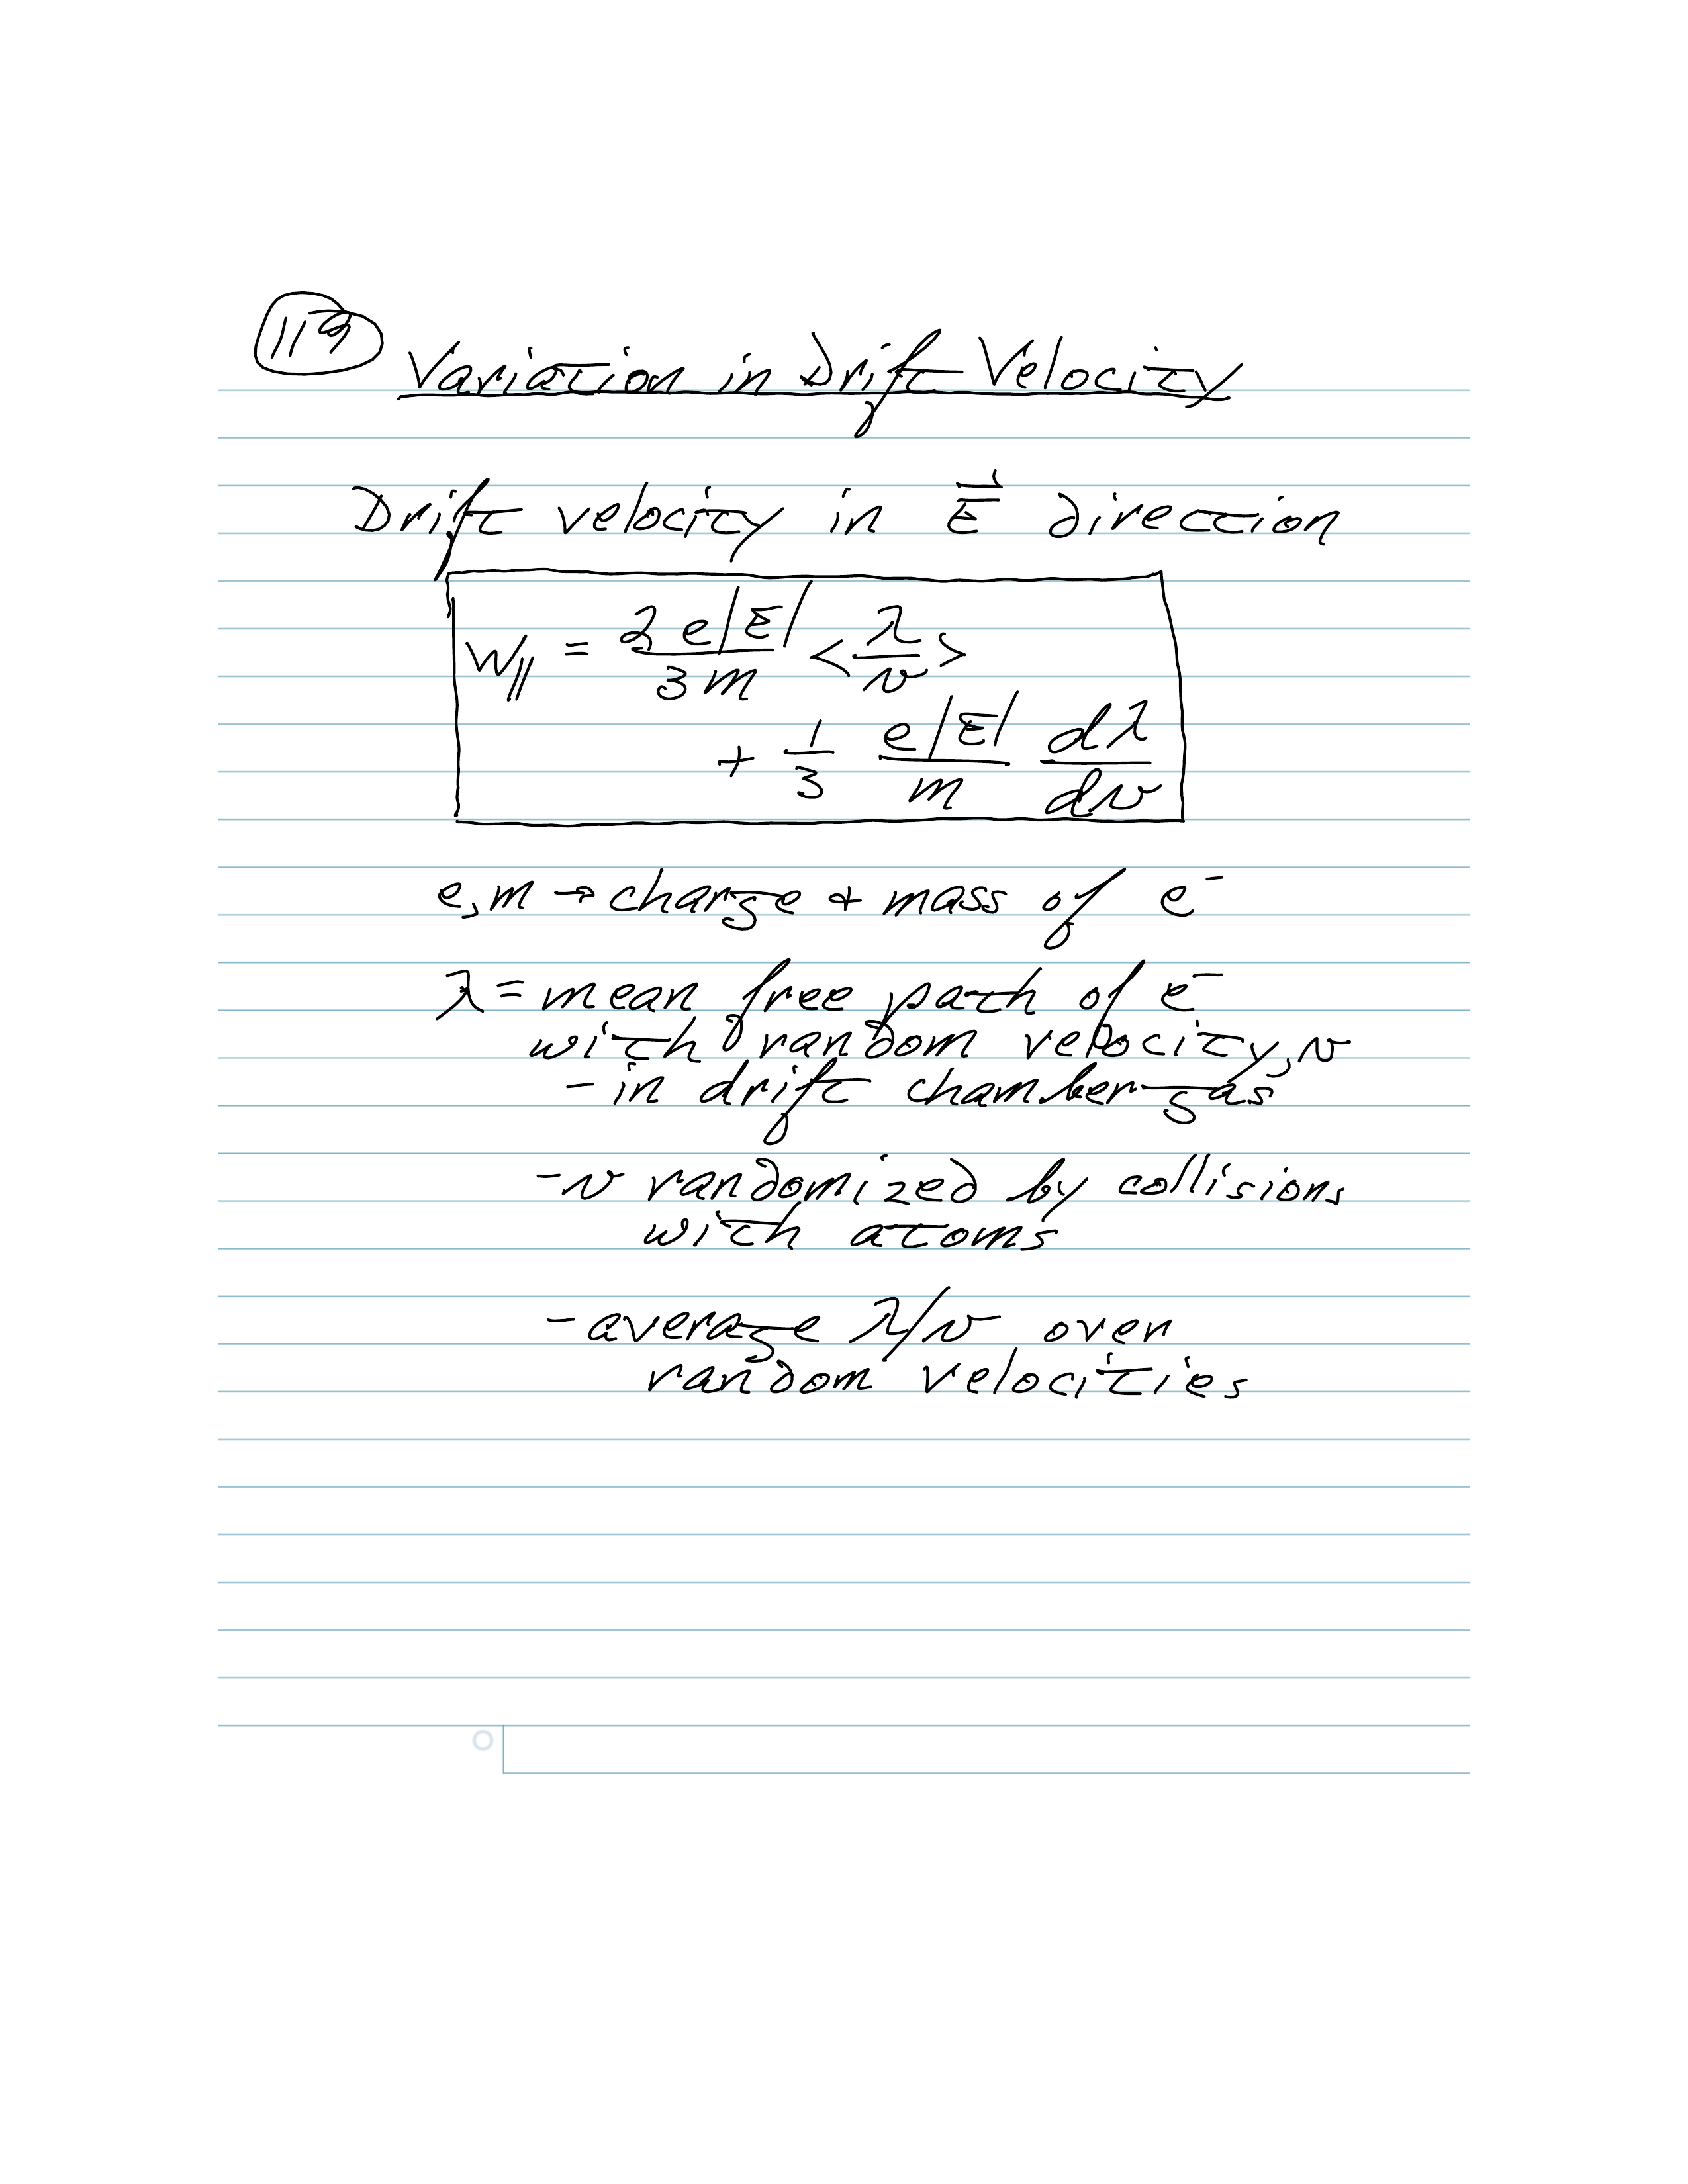 119
Variation in Drift Velocity
Drift velocity in E⃗ direction
W∥ = 2e|E|/3m <λ/v>
+ 1/3 e|E|/m dλ/dv
e, m → charge + mass of e⁻
λ = mean free path of e⁻
with random velocity, v
- in drift chamber gas
- v randomized by collisions
with atoms
- average λ/v over
random velocities